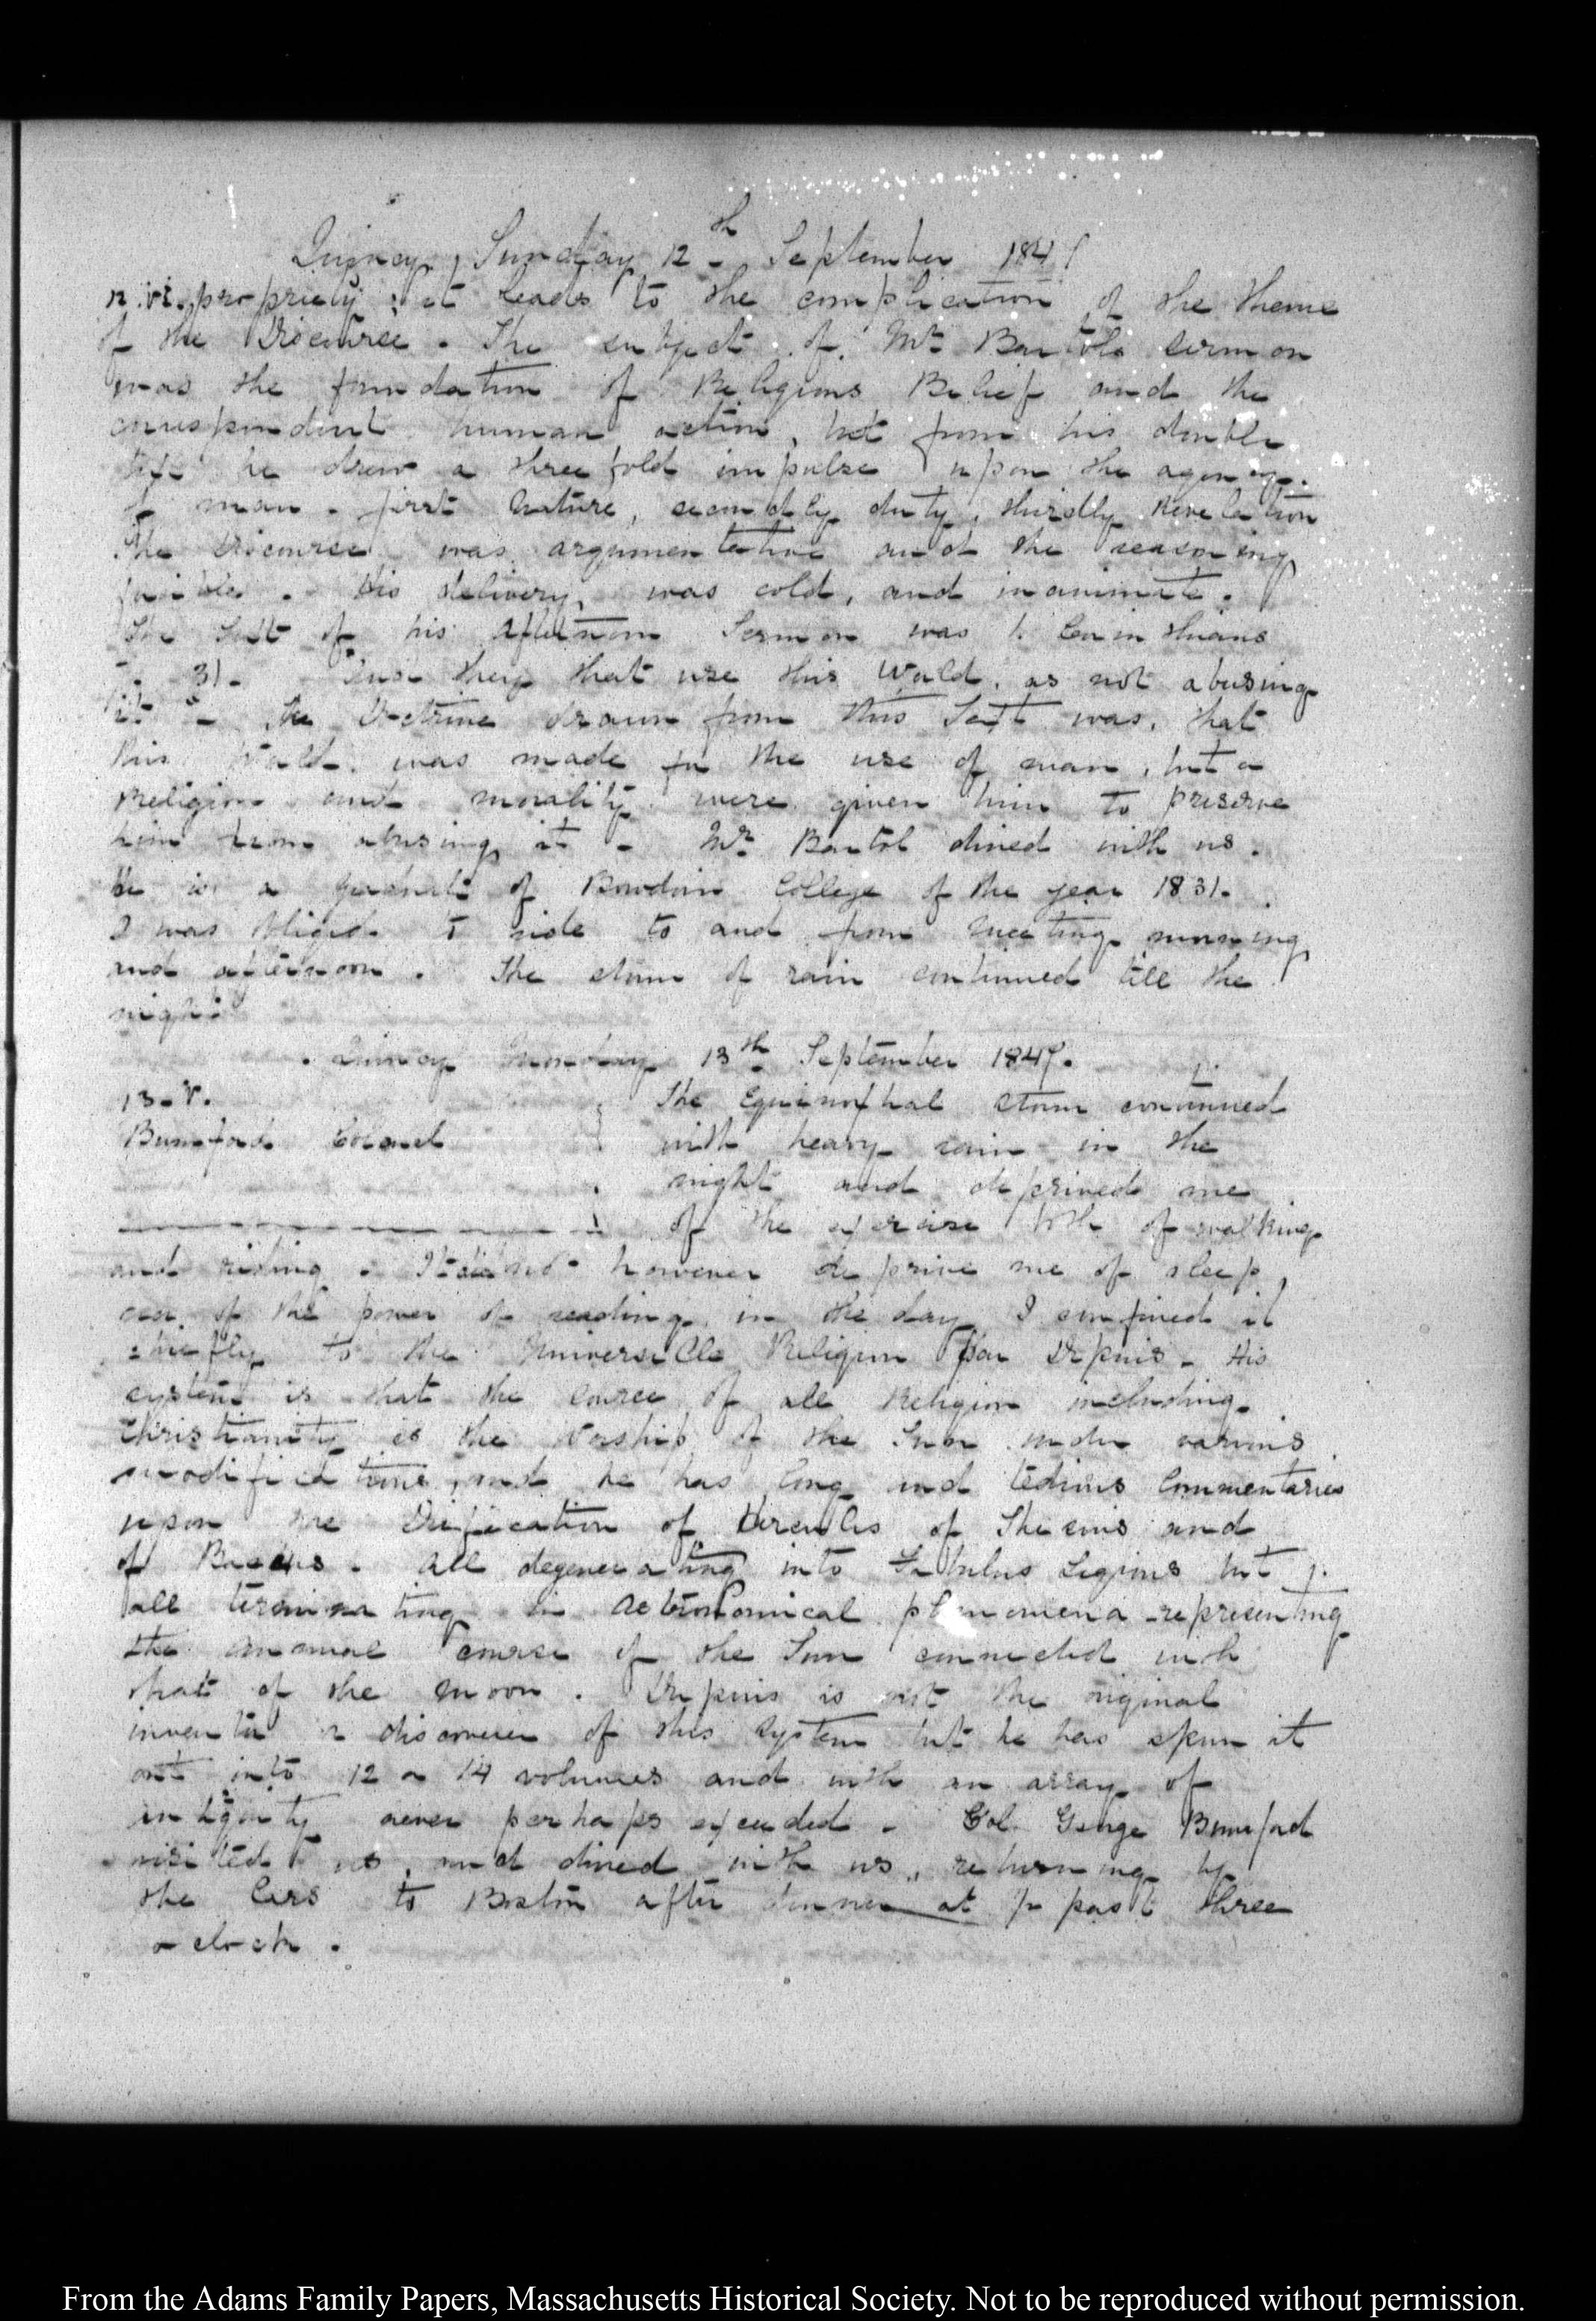 Quincy, Sunday 12th September 1847
12. VI. propriety; it leads to the complication of the theme
of the Discourse. The subject of Mr Bartol's sermon
was the foundation of Religious Belief and the
correspondent human action, but from his double
text he drew a three fold impulse upon the agency
of man. first Nature, secondly duty, thirdly Revelation
The Discourse was argumentative and the reasoning
forcible. His delivery, was cold, and inanimate.
The Text of his Afternoon Sermon was 1. Corinthians
31. they that use this World, as not abusing
it. The Doctrine drawn from this Text was, that
this World, was made for the use of man, but a
Religion and morality were given him to preserve
him from abusing it. Mr Bartol dined with us.
He is a graduate of Bowdoin College of the year 1831.
I was obliged to ride to and from Meeting morning
and afternoon. The storm of rain continued till the
night
Quincy Monday 13th September 1847.
13. V. The Equinoxial storm continued
Bumford Colonel with heavy rain in the
night and deprived me
of the exercise both of walking
and riding. It did not however deprive me of sleep,
nor of the power of reading in the day. I confined it
chiefly to the Universelle Religion par Dupuis. His
system is that the source of all Religion including
Christianity is the Worship of the Sun under various
modifications, and he has long and tedious Commentaries
upon the Deification of Hercules of Theseus and
of Bacchus. All degenerating into Fabulus Legions but
all terminating in Astronomical phenomena representing
the annual course of the Sun connected with
that of the moon. Dupuis is not the original
inventor or discoverer of this System but he has spun it
out into 12 or 14 volumes and with an array of
antiquity never perhaps exceeded. Col. George Bumford
visited us, and dined with us, returning by
the Cars to Boston after dinner at past three
o clock.
From the Adams Family Papers, Massachusetts Historical Society. Not to be reproduced without permission.